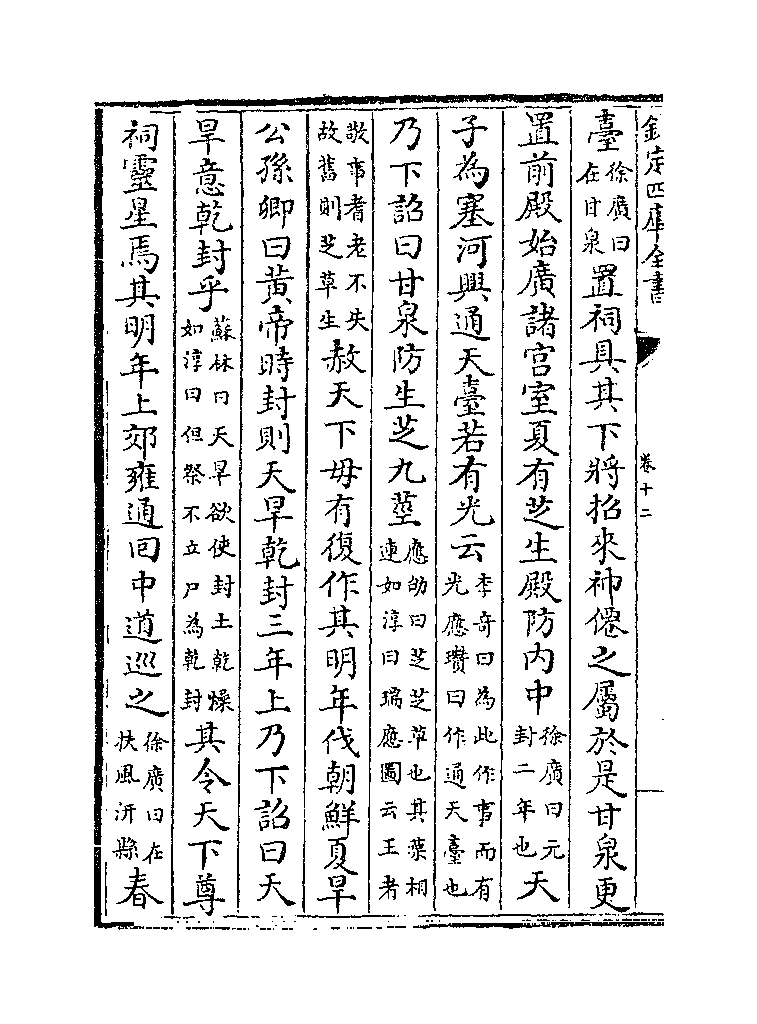 欽定四庫全書
卷十二
臺徐廣曰在甘泉置祠具其下將招來神僊之屬於是甘泉更
置前殿始廣諸宫室夏有芝生殿防内中徐廣曰元封二年也天
子為塞河興通天臺若有光云李奇曰為此作事而有光應瓚曰作通天臺也
乃下詔曰甘泉防生芝九莖應劭曰芝芝草也其葉相連如淳曰瑞應圖云王者
敬事耆老不失故舊則芝草生赦天下毋有復作其明年伐朝鮮夏旱
公孫卿曰黃帝時封則天旱乾封三年上乃下詔曰天
旱意乾封乎蘇林曰天旱欲使封土乾燥如淳曰但祭不立尸為乾封其令天下尊
祠靈星焉其明年上郊雍通回中道巡之徐廣曰在扶風汧縣春